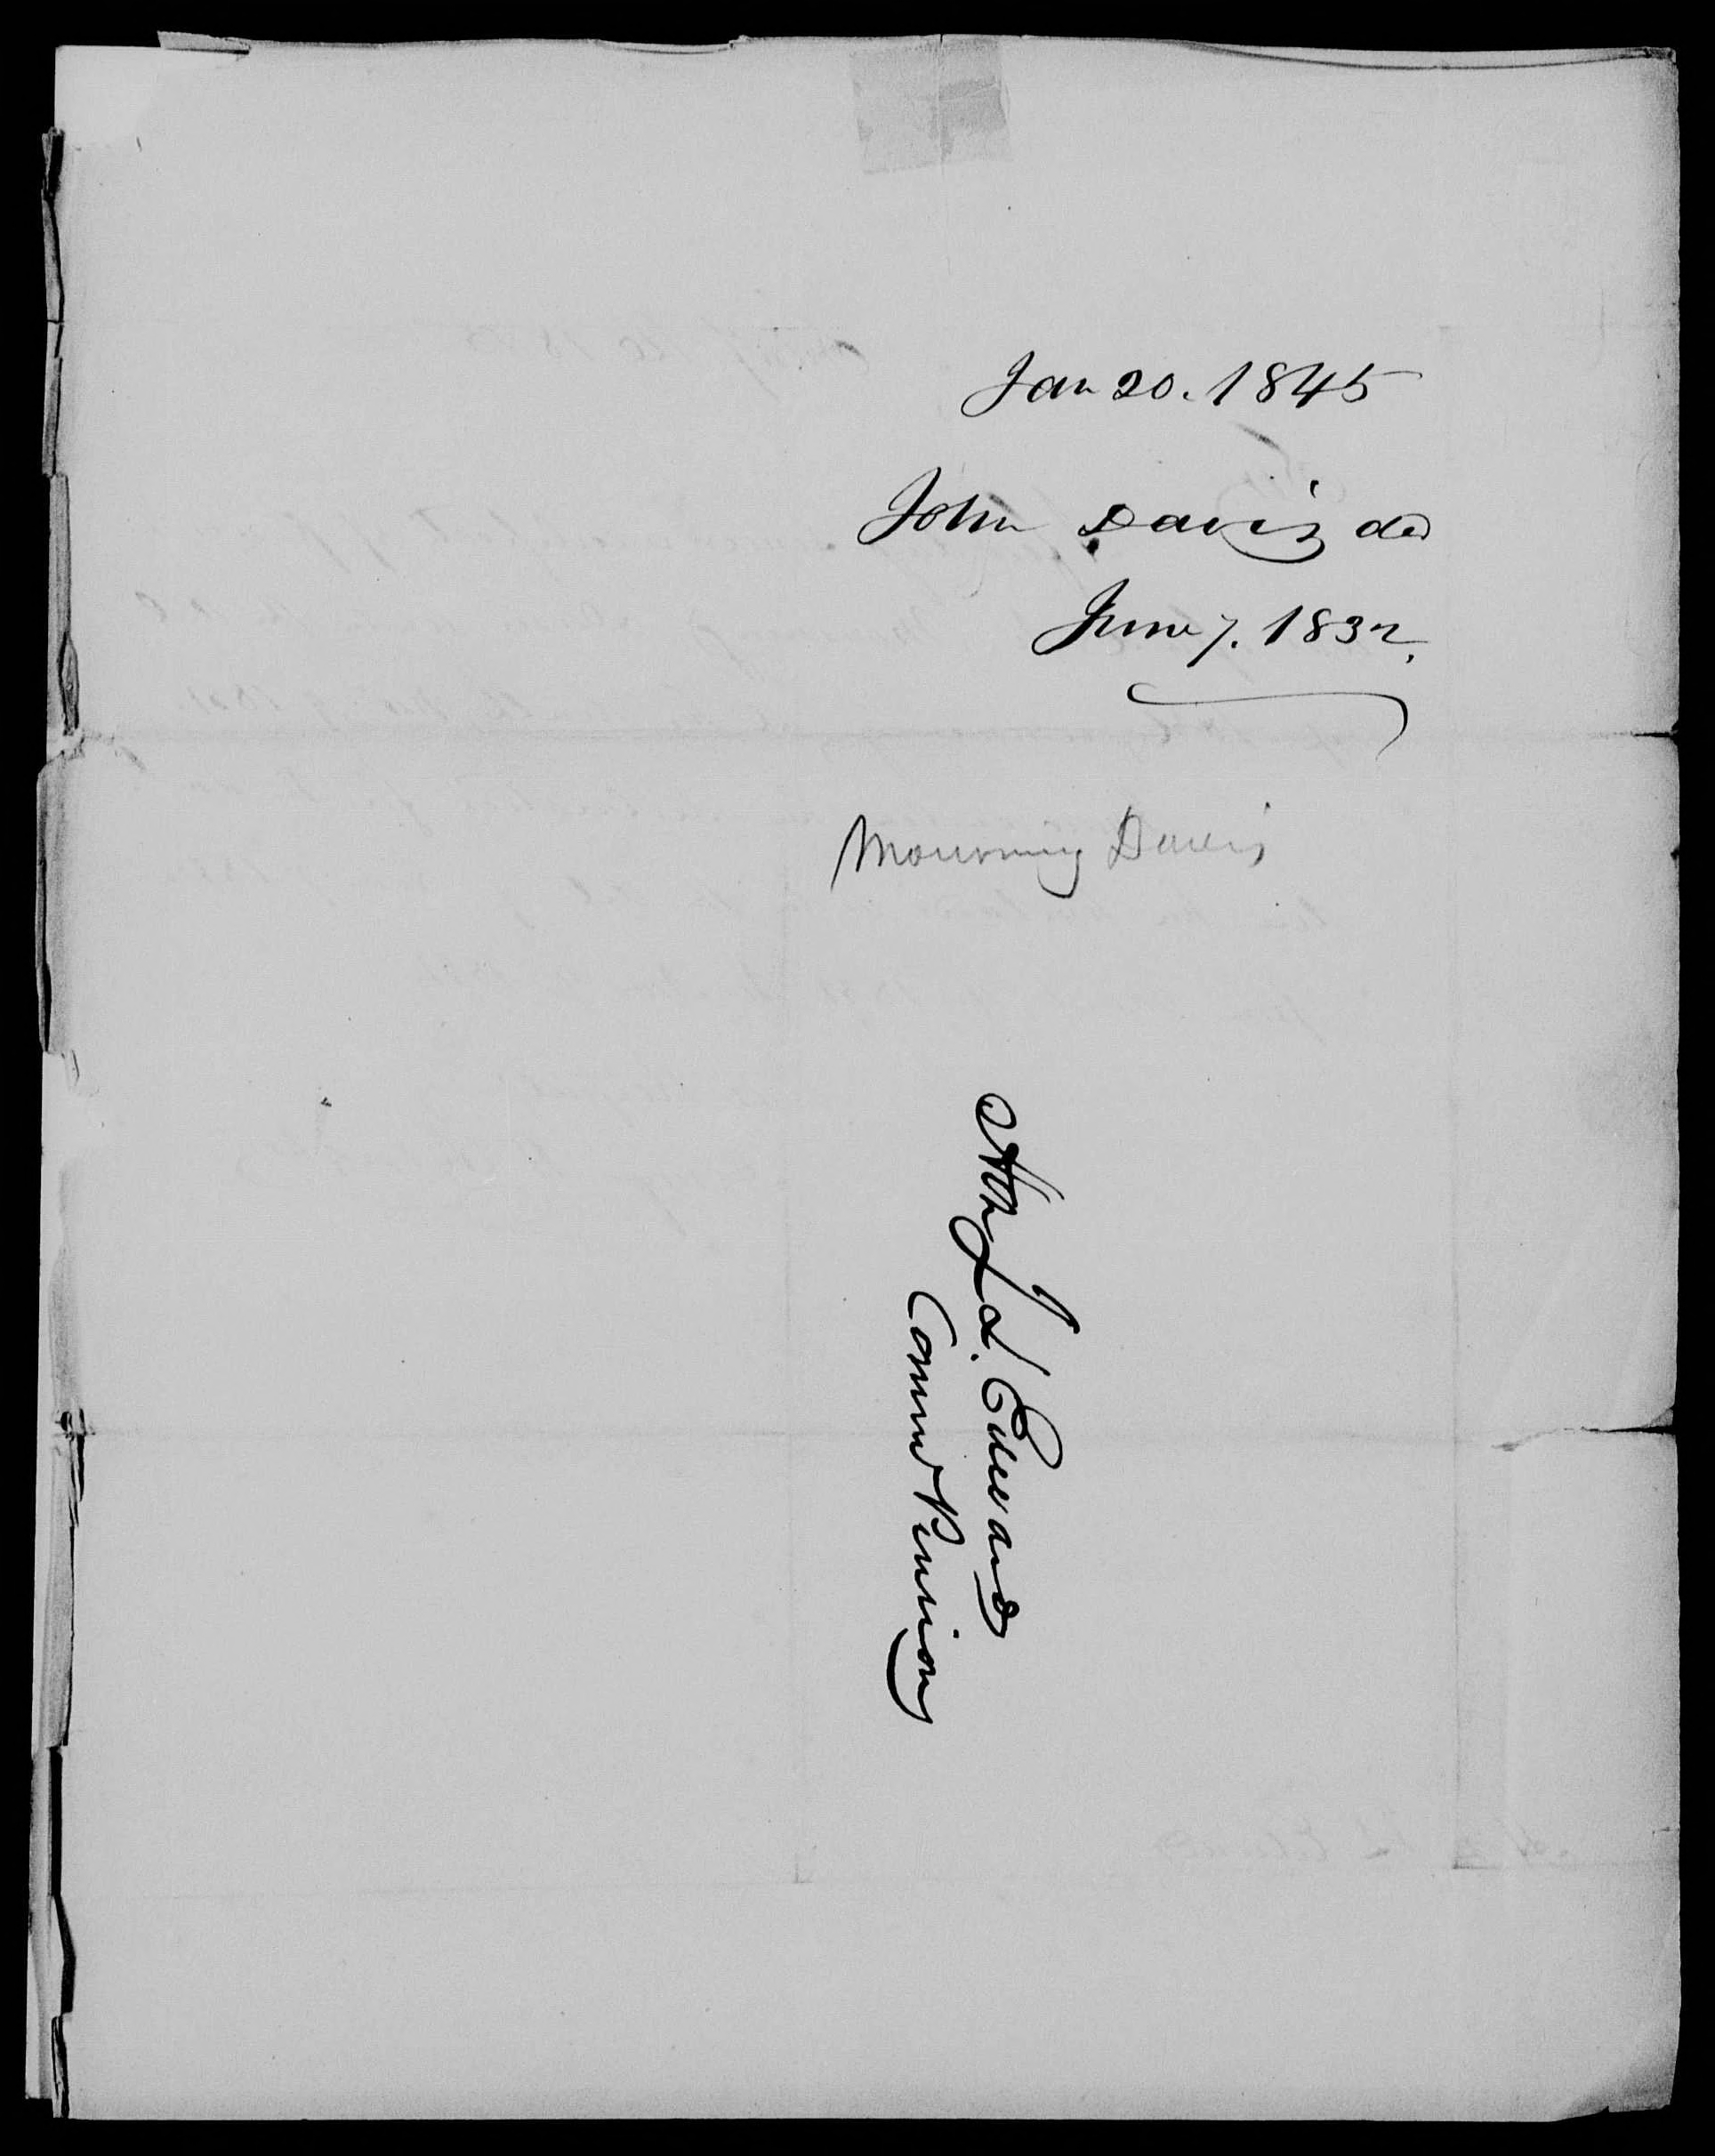 Jan 20. 1845
John Davis dd
June 7. 1832.
Mourning Davis
J. L. Edwards
Comm Pensions